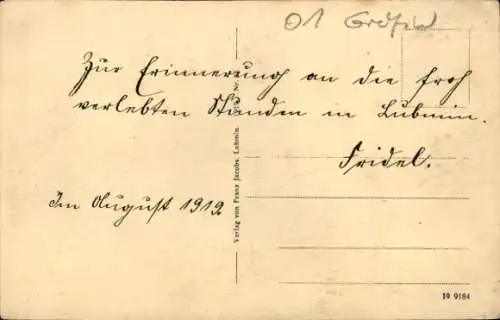 01
Zur Erinnerung an die froh
verlebten Stunden in Lubmin.
Fridel.
Im August 1919
Verlag von Franz Jacobs. Lubmin. Nr.
19 9184